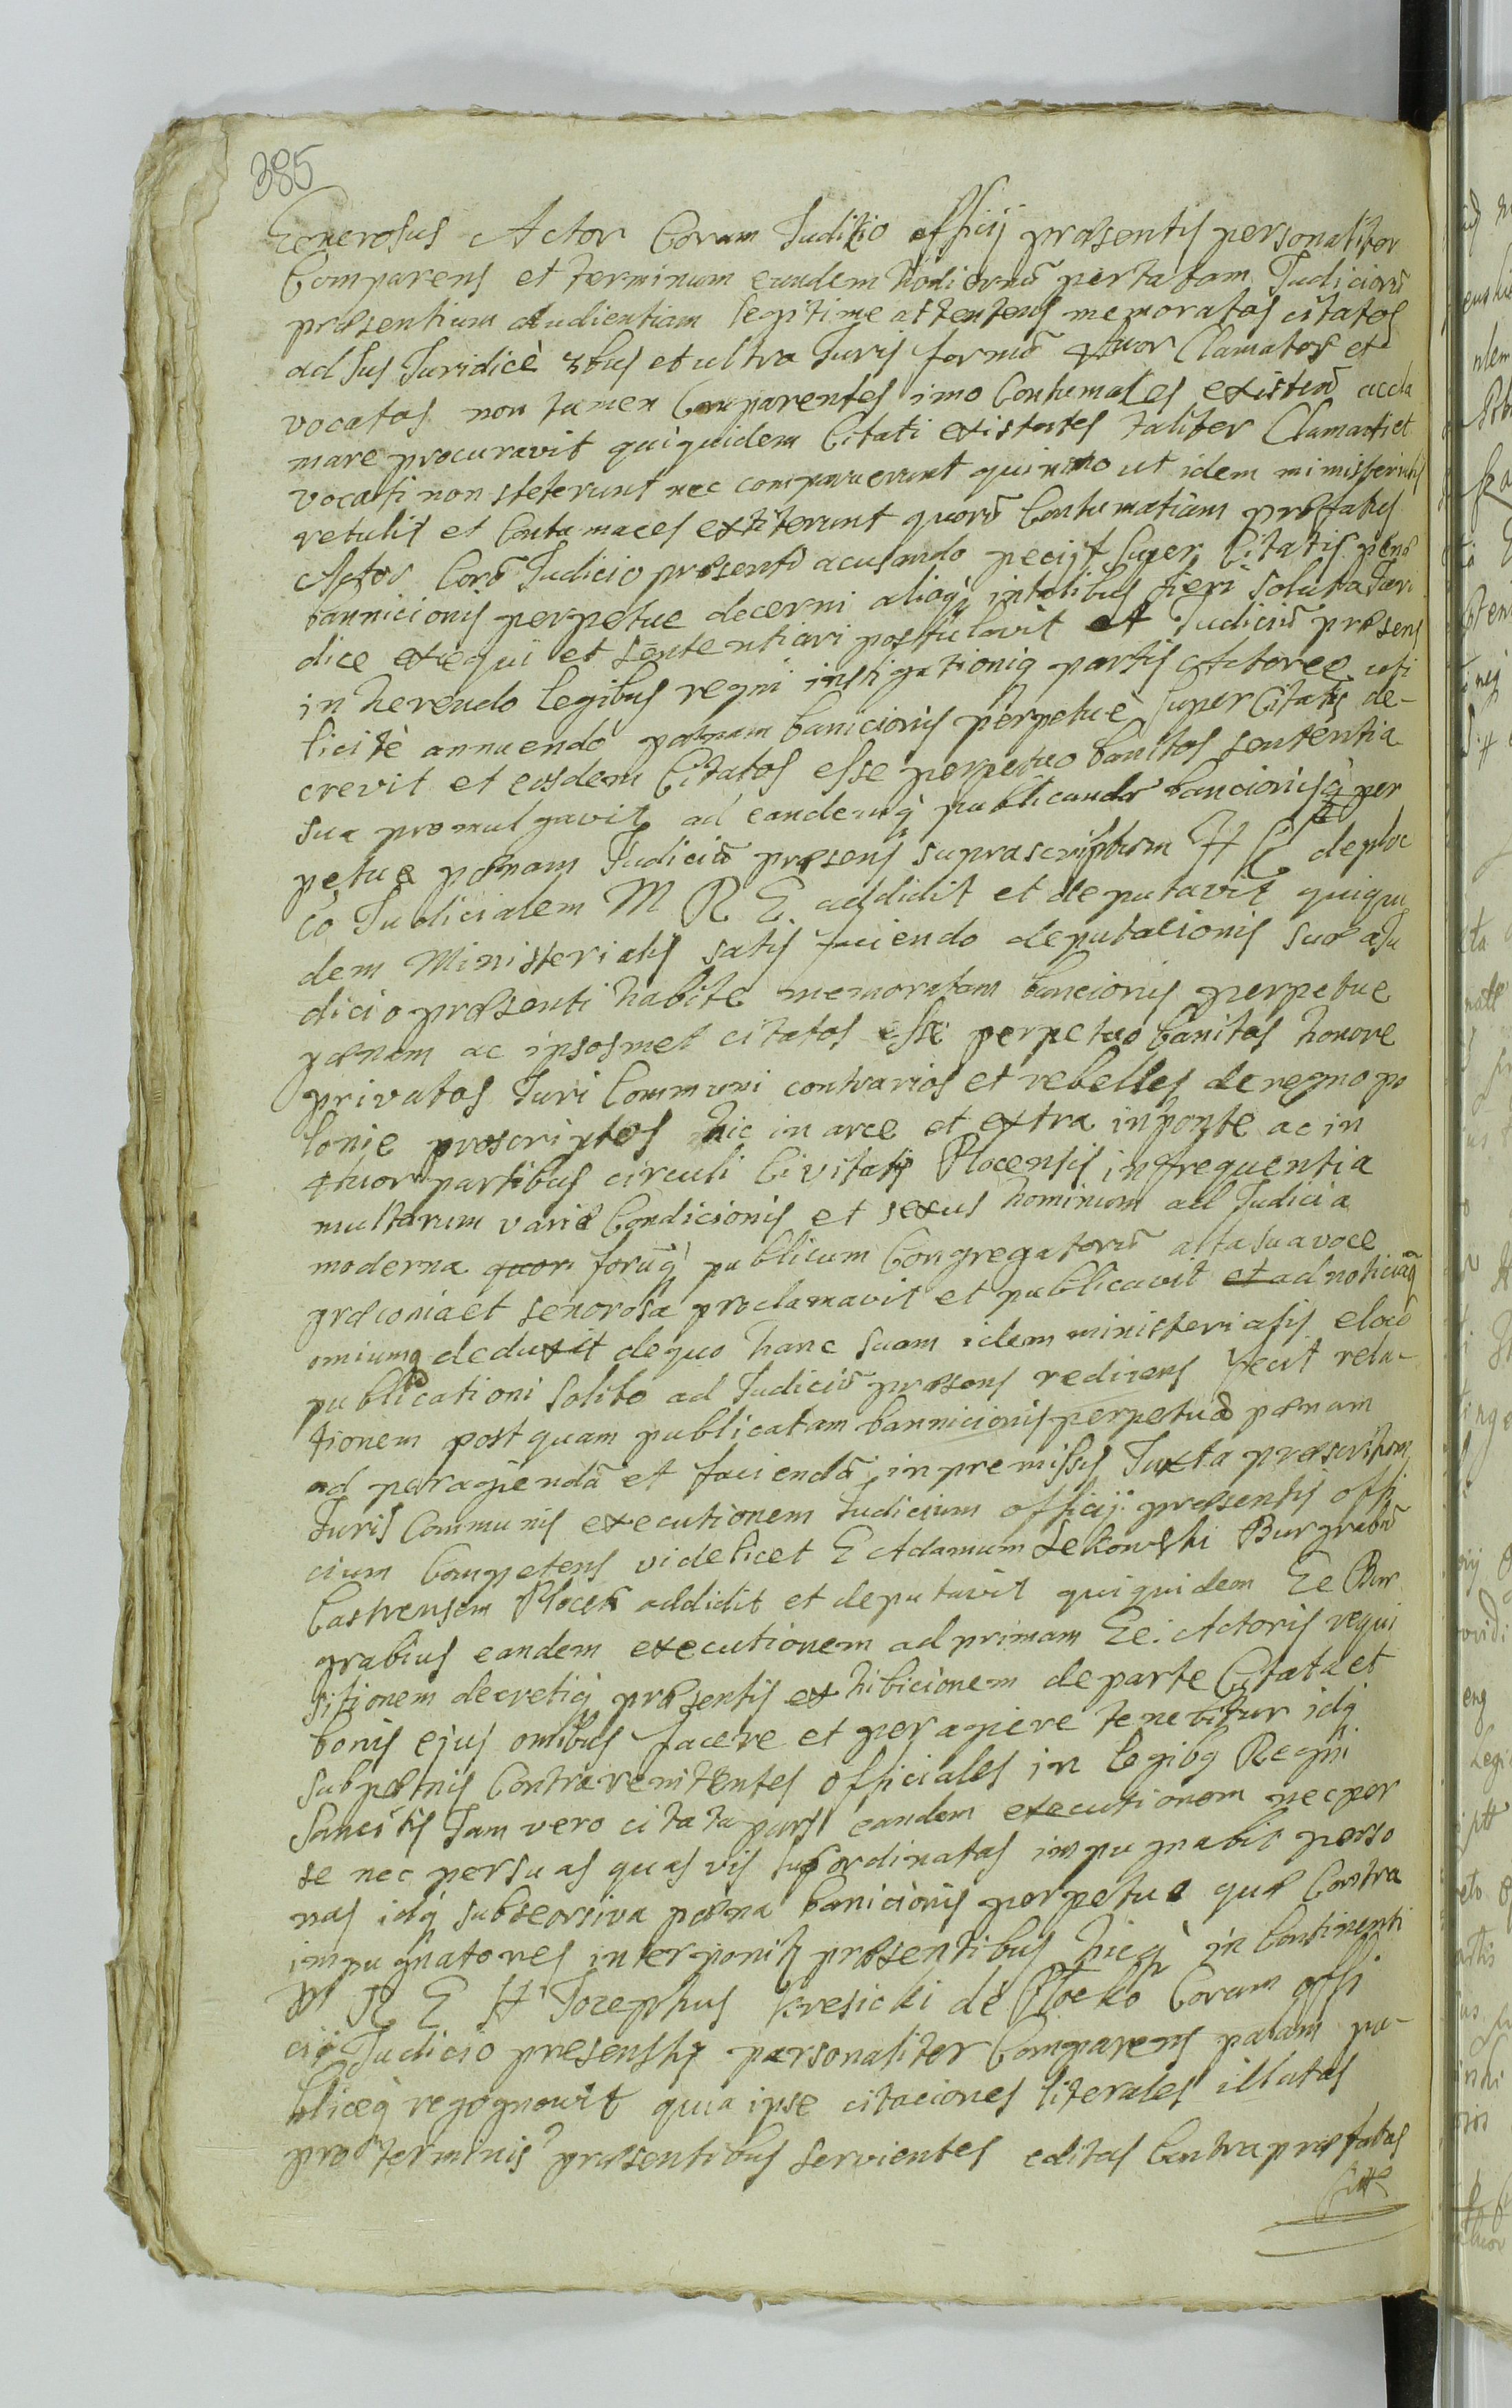 385
Generosus Actor Coram Juditio officij præsentis personaliter
Comparens et terminum eundem hodiernū per tatam Judiciorū
præsentium Audientiam legitime attentens memoratos citatos
ad Jus Juridicè 3bus et ultra Juris formā 4tuor Clamatos et
vocatos non tamen Comparentes imo Contumales existen̄ accla
mare procuravit qui quidem Citati existentes taliter Clamati et
vocati non steterunt nec comparuerunt quinimo ut idem ministerialis
retulit et Contumaces extiterunt quorū Contumatiam præfatus
Actor Corā Judicio præsenti acusando pecijt super Citatis pænā
bannicionis perpetue decerni aliaq in talibus fieri soluta Juri
dice exequi et sententiari postulavit et Judiciū præsens
in herendo legibus regni instigationiq partis Actoreæ uti
licitè annuendo pænam banicionis perpetuè super Citatis de-
crevit et eosdem Citatos esse perpetuo banitos sententia
sua promulgavit ad eandemq publicandā bancionisq per
petuæ pænam Judiciū præsens suprascriptum H G de ploc
co Judicialem M R G addidit et deputavit quiqui
dem Ministerialis satis faciendo deputacionis suæ a Ju
dicio præsenti habite memoratam bancionis perpetue
pænam ac ipsosmet citatos esse perpetuo banitos honore
privatos Juri Communi contrarios et rebelles de regno po
lonie proscriptos hic in arce et extra in ponte ac in
4tuor partibus circuli Civitatis Plocensis in frequentia
multarum variæ Condicionis et sexus hominum ad Judicia
moderna quor forūq publicum Congregatorū alta sua voce
præconia et senorosa proclamavit et publicavit et ad noticiāq
omiumq deduxit de quo hanc suam idem ministerialis e loco
publicationi solito ad Judiciū præsens rediens fecit rela-
tionem post quam publicatam bannicionis perpetuæ pænam
ad peragendā et faciendā in premissis Juxta præscriptum
Juris Communis executionem Judicium officij præsentis offi
cium Competens videlicet G Adamum Lekowski Burgrabiū
Castrensem Plocen̄ addidit et deputavit qui quidem Ge Bur
grabius eandem executionem ad primam Ge: Actoris requi
sitionem decretiq præsentis ex hibicionem de parte Citata et
bonis ejus omibus facere et peragere tenebitur idq
sub pænis Contra renitentes officiales in legibq Regni
Sancitis Jam vero citata pars eandem executionem nec per
se nec per suas quas vis subordinatas impugnabit perso
nas idq sub seorsiva pæna banicionis perpetuæ quæ Contra
impugnatores interponit præsentibus hicq in Continenti
M R G H Jozephus Kresicki de Plocko Coram offi
cio Judicio presenshq personaliter Comparens palam pu-
bliceq regognovit quia ipse citaciones literales illatas
pro terminis præsentibus servientes editas Contra præfatos
Citt